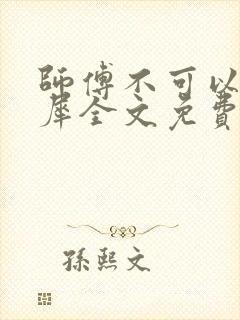 師傅不可以
犀全文免費
孫熙文